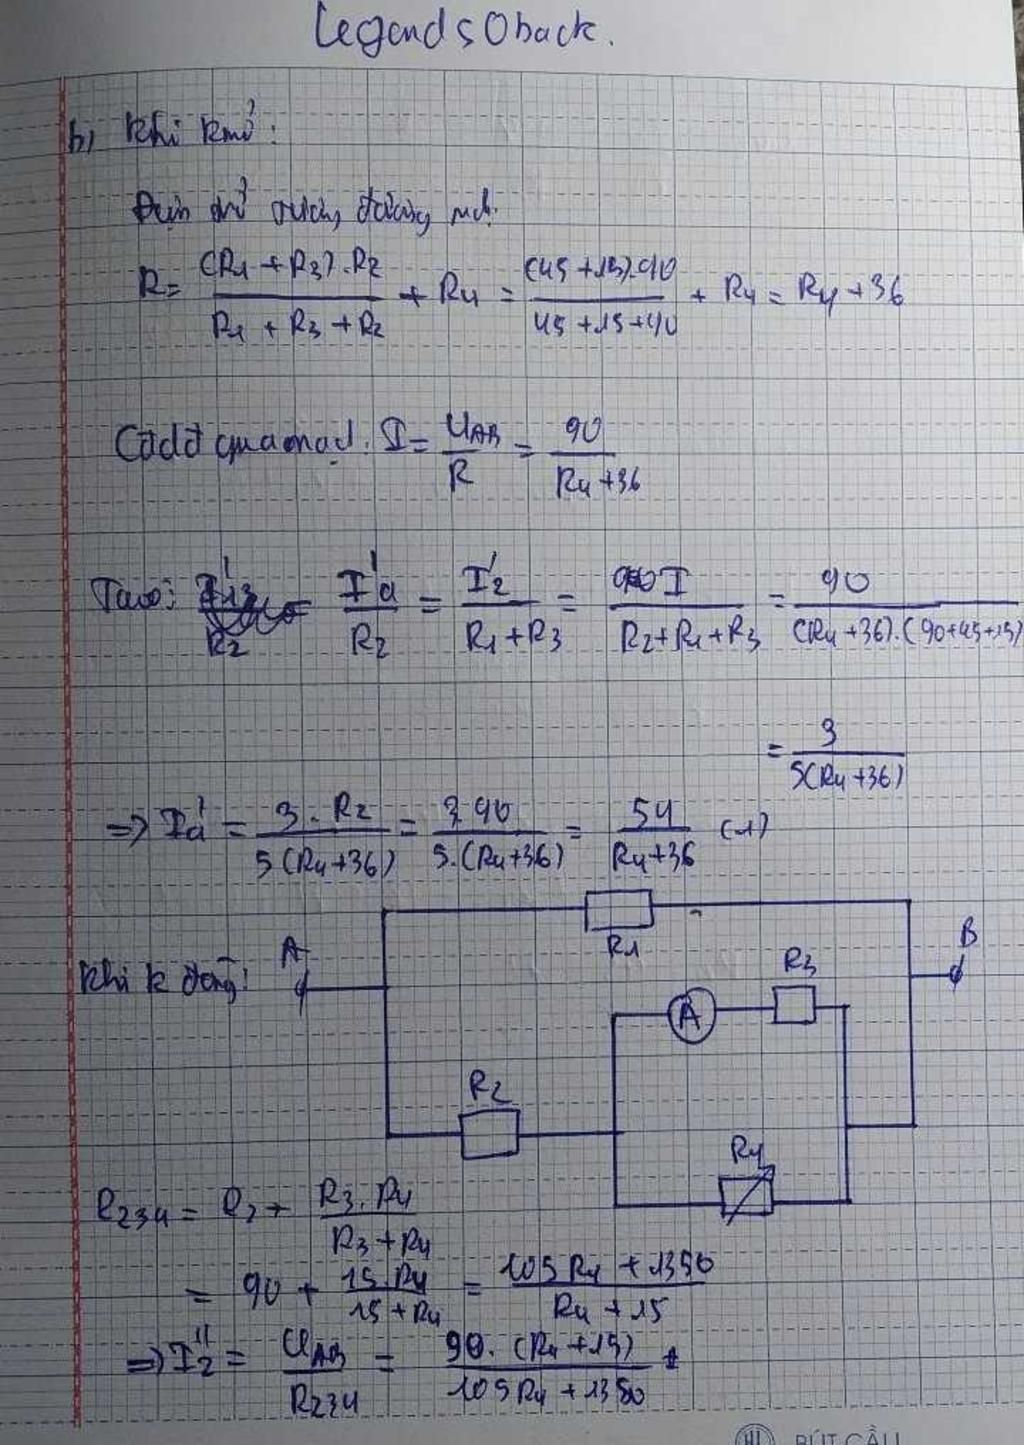 Legends0back.
b) Khi k mở:
Điện trở tương đương mạch:
R = \frac{(R1 + R3).R2}{R1 + R3 + R2} + R4 = \frac{(45+15).90}{45+15+90} + R4 = R4 + 36
Cđdđ qua mạch: I = \frac{UAB}{R} = \frac{90}{R4+36}
Ta có: \frac{I'a}{R2} = \frac{I'2}{R1+R3} = \frac{I}{R2+R1+R3} = \frac{90}{(R4+36).(90+45+15)}
= \frac{3}{5(R4+36)}
=> I'a = \frac{3.R2}{5(R4+36)} = \frac{3.90}{5.(R4+36)} = \frac{54}{R4+36} (1)
Khi k đóng:
A
R1
B
R3
A
R2
R4
R234 = R2 + \frac{R3.R4}{R3+R4}
= 90 + \frac{15.R4}{15+R4} = \frac{105R4+1350}{R4+15}
=> I''2 = \frac{UAB}{R234} = \frac{90.(R4+15)}{105R4+1350}
BÚT CẦU